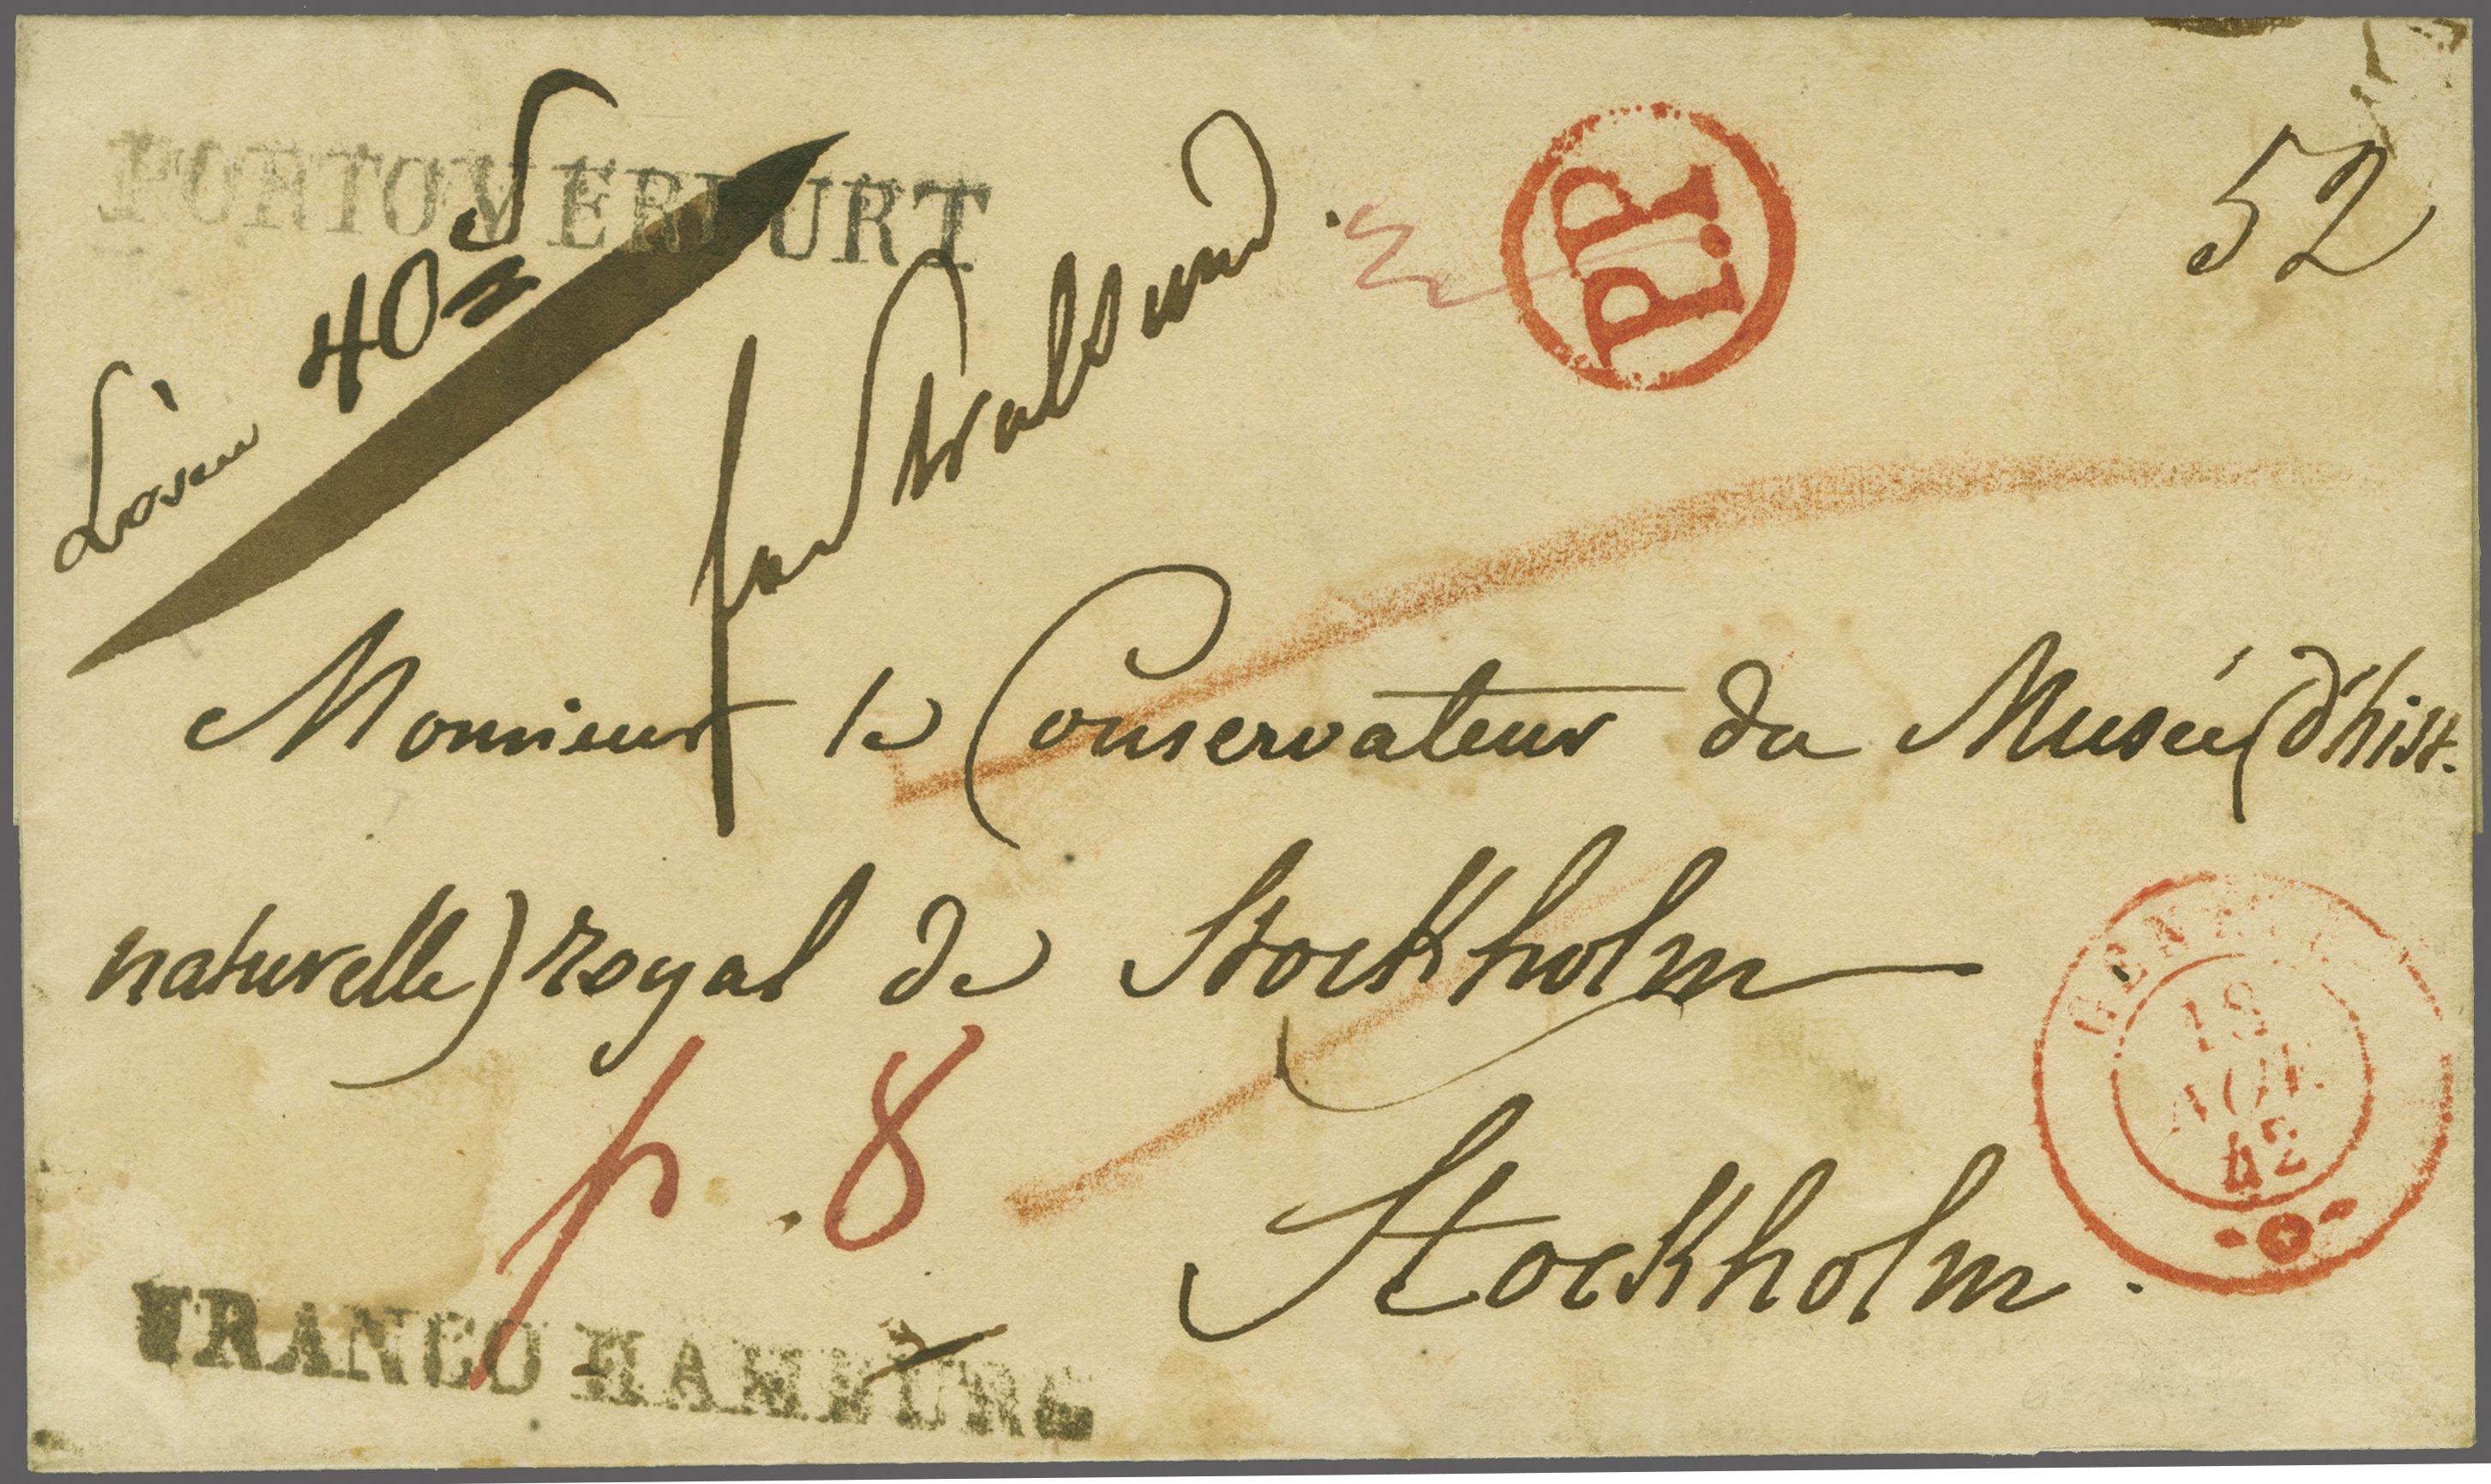 PORTO V ERFURT
Lösen 40
fco Stralsund.
P.P.
52
Monsieur le Conservateur du Musée (d'hist.
naturelle) royal de Stockholm
Stockholm.
p. 8
GENÈVE
18
AOU.
42
FRANCO HAMBURG